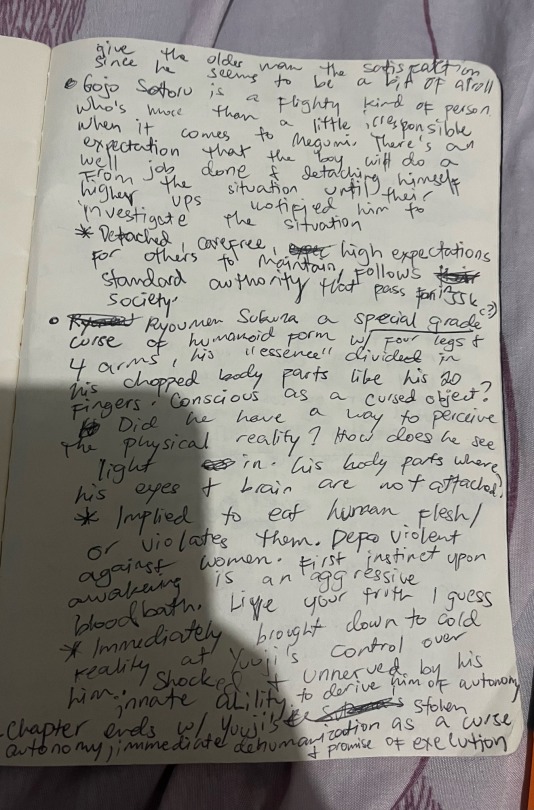 give the older man the satisfaction
since he seems to be a bit of a troll
• Gojo Satoru is a flighty kind of person
who's more than a little irresponsible
when it comes to Megumi. There's an
expectation that the boy will do a
well job done & detaching himself
from the situation until their
higher ups notified him to
investigate the situation
* Detached, carefree, high expectations
for others to maintain, follows
standard authority that pass for JJK
society.
• Ryoumen Sukuna a special grade (?)
curse of humanoid form w/ four legs &
4 arms, his "essence" divided in
his chopped body parts like his 20
fingers. Conscious as a cursed object?
Did he have a way to perceive
the physical reality? How does he see
light in his body parts where
his eyes & brain are not attached.
* Implied to eat human flesh/
or violates them. Depo violent
against women. First instinct upon
awakening is an aggressive
bloodbath. Live your truth I guess
* Immediately brought down to cold
reality at Yuuji's control over
him. Shocked & unnerved by his
innate ability to derive him of autonomy
-Chapter ends w/ Yuuji's stolen
autonomy, immediate dehumanization as a curse
& promise of execution